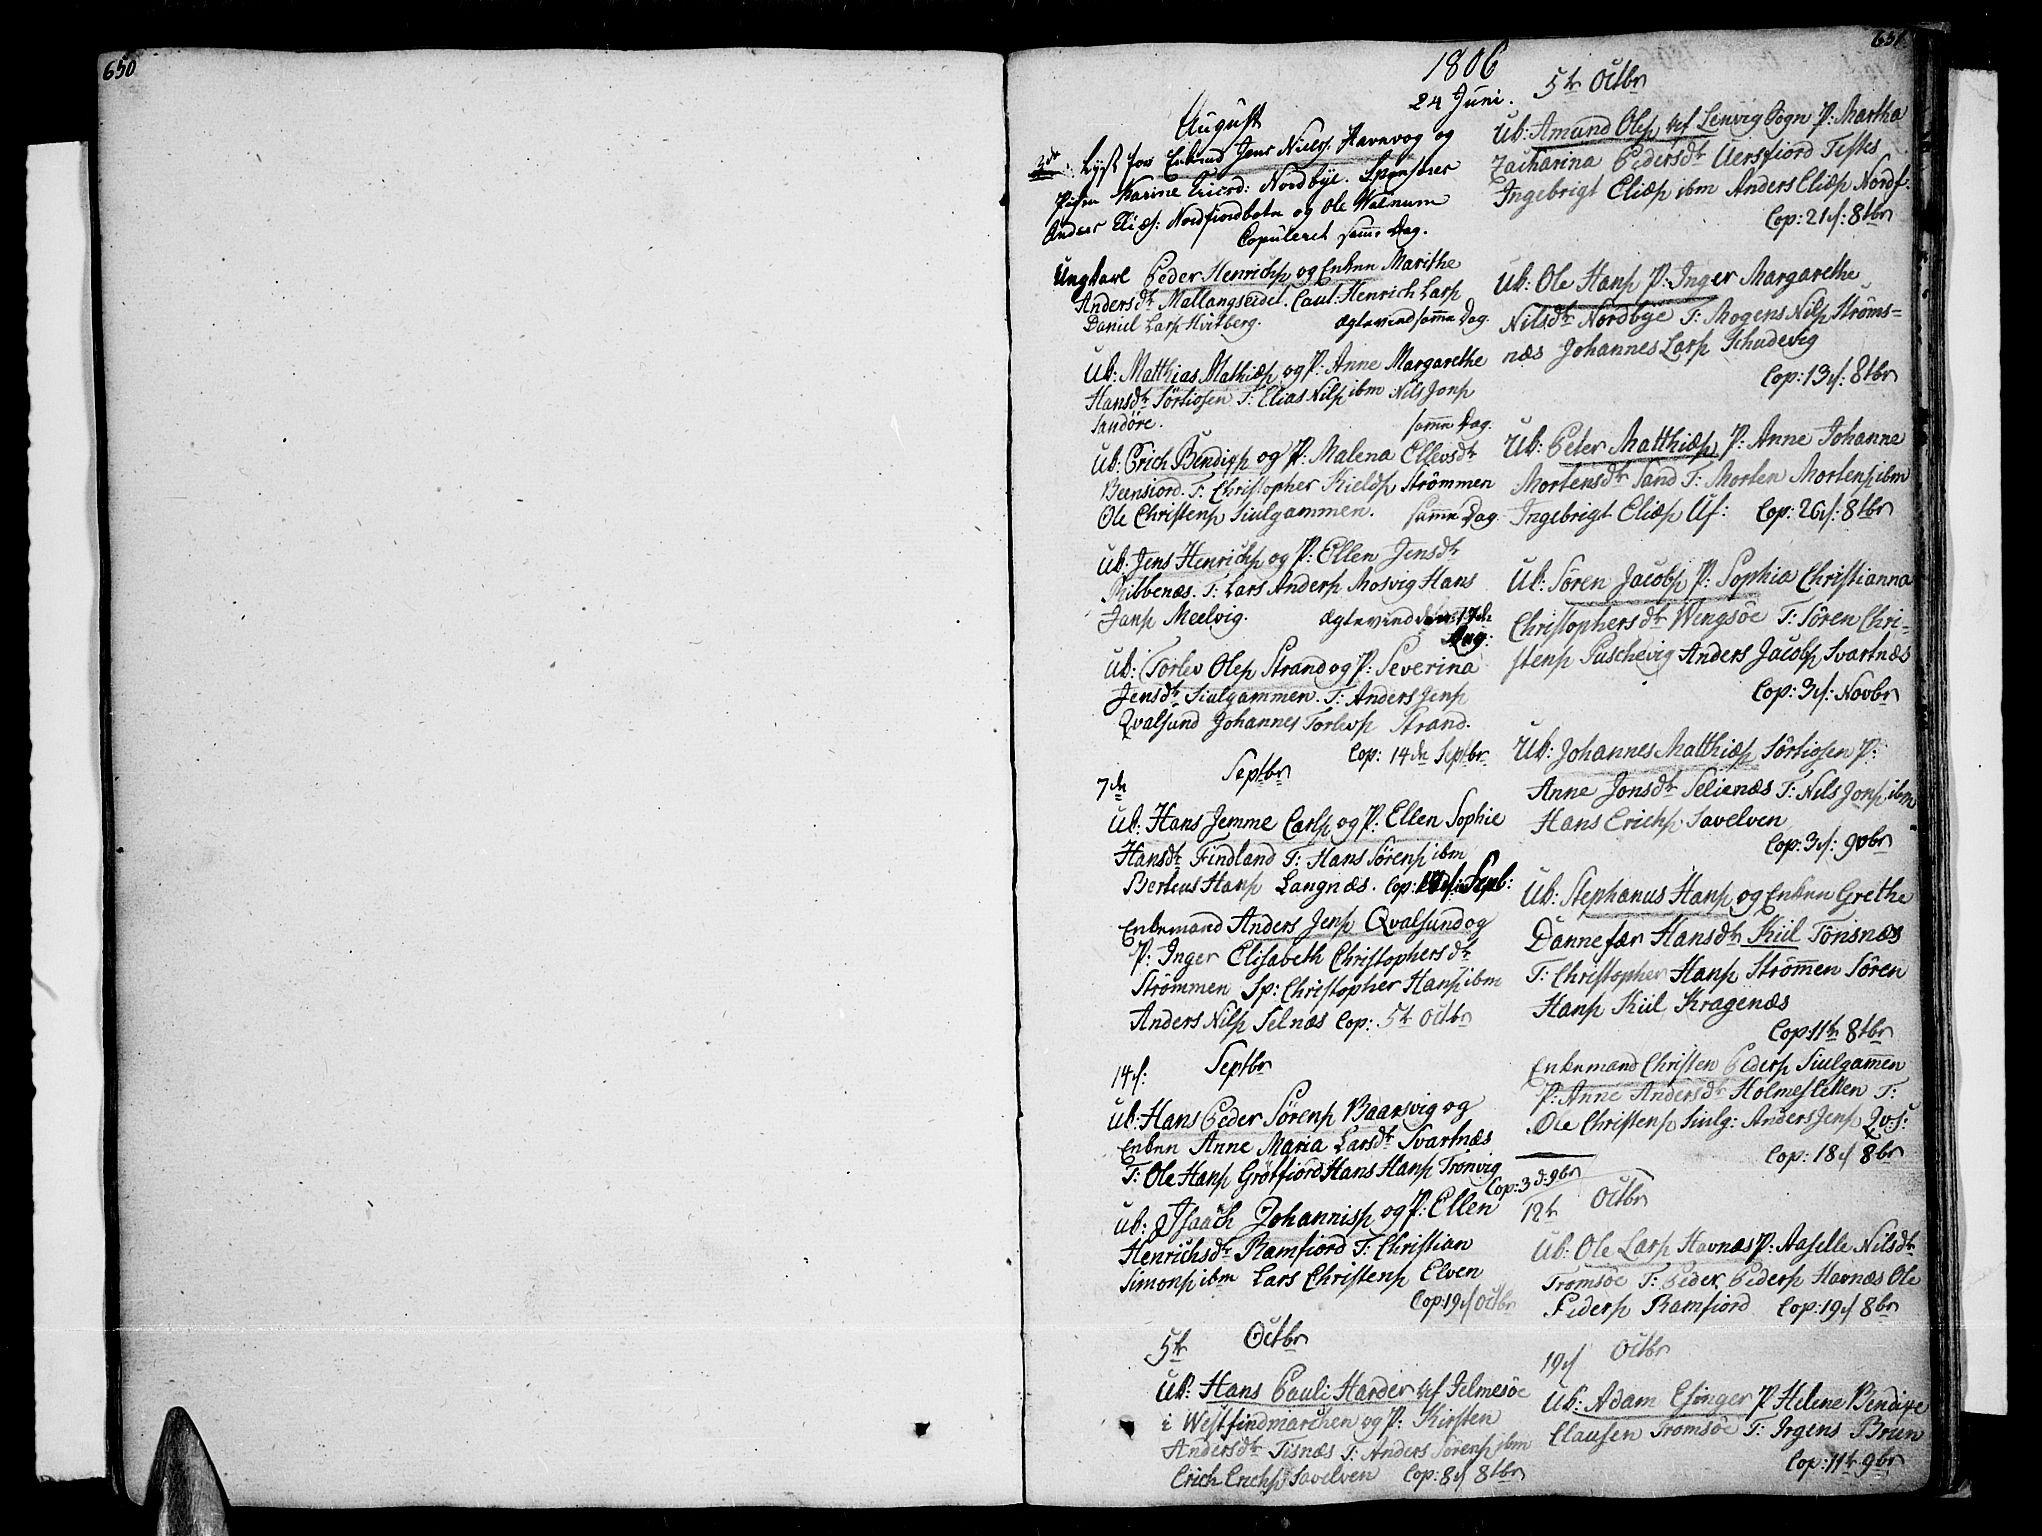 650
651
1806
24 Juni.
August
3de: Lyst for Enkmd Jens Niels. Havnvog og
Pigen Karine Ericsd: Nordbye. Sponsores
Anders Eliæs: Nordfiordbotn og Ole Walnum
Copuleret samme Dag.
Ungkarl Peder Henrichs og Enken Marithe
Andersdtr Mallangseidet. Caut: Henrich Lars
Daniel Lars Hvitberg. Ægteviedsamme Dag.
Uk: Matthias Mathiæs og P: Anne Margarethe
Hansdtr Sørtiosen T: Elias Nils ibm Nils Jons
Sandøre. samme Dag.
Uk: Erich Bendixs og P: Malena Ellevsdtr
Beensiord. T: Christopher Kields Strömmen
Ole Christens Siulgammen. samme Dag.
Uk. Jens Henrichs og P: Ellen Jensdtr
Ribbenæs. T: Lars Anders Mosvig Hans
Jans Meelvig. Ægtevied den 17de
Aug:
Uk: Torlev Oles Strand og P: Severina
Jensdtr Siulgammen. T: Anders Jens
Qvalsund Johannes Torlevs Strand.
Cop: 14de Septbr
7de Septbr
Uk: Hans Jemme Carls og P: Ellen Sophie
Hansdtr Findland T: Hans Sörens ibm
Berteus Hans Langnæs. Cop: Sept:
Enkemand Anders Jens Qvalsund og
P: Inger Elisabeth Christophersdtr
Strömmen Sp: Christopher Hans ibm
Anders Nils Selnæs Cop: 5te Octbr
14d: Septbr
Uk: Hans Peder Sörens Baarsvig og
Enken Anne Maria Larsdtr Svartnæs
T: Ole Hans Grötfiord Hans Hans Tronvig
Cop: 3d: 9br
Uk: Isaach Johannis og P: Ellen
Henrichsdtr Ramfiord T: Christian
Simons ibm Lars Christens Elven
Cop: 19d Octbr
5te Octbr
Uk: Hans Pauli Harder af Jelmesöe
i Westfindmarchen og P: Kirsten
Andersdtr Tisnæs T: Anders Sörens ibm
Erich Erichs Savelven Cop: 8d 8tbr
5te Octbr
Uk: Amund Oles af Lenvig Sogn P: Martha
Zacharina Pedersdtr Uersfiord Testes
Ingebrigt Eliæs ibm Anders Eliæs Nordf:
Cop: 21d: 8tbr
Uk: Ole Hans P: Inger Margarethe
Nilsdtr Nordbye T: Mogens Nils Ströms=
næs Johannes Lars Schudevig
Cop: 13d: 8tbr
Uk: Peter Matthiæs P: Anne Johanne
Mortensdtr Sand T: Morten Mortens ibm
Ingebrigt Eliæs Uf: Cop: 26d: 8tbr
Uk: Sören Jacobs P: Sophia Christianna
Christophersdtr Wengsöe T: Sören Chri-
stens Puschevig Anders Jacobs Svartnæs
Cop: 3d: Novbr
Uk: Johannes Matthiæs Sörtiosen P:
Anne Jonsdtr Selienæs T: Nils Jons ibm
Hans Erichs Savelven
Cop: 3d: 9vbr
Uk: Stephanus Hans og Enken Grethe
Dannefær Hansdtr Kiil Tönsnæs
T: Christopher Hans Strömmen Sören
Hans Kiil Kragenæs
Cop: 11te 8tbr
Enkemand Christen Peders Siulgammen
P: Anne Andersdtr Holmesletten T:
Ole Christens Siulg: Anders Jens Qvs:
Cop: 18d 8br
12te Octbr
Uk: Ole Lars Havnæs P: Aaselle Nilsdtr
Tromsöe T: Peder Peders Havnæs Ole
Peders Ramfiord Cop: 19d 8br
19d Octbr
Uk: Adam Esinger P Helene Bendixe
Clausen Tromsöe T: Irgens Brun
Cop: 11te 9br